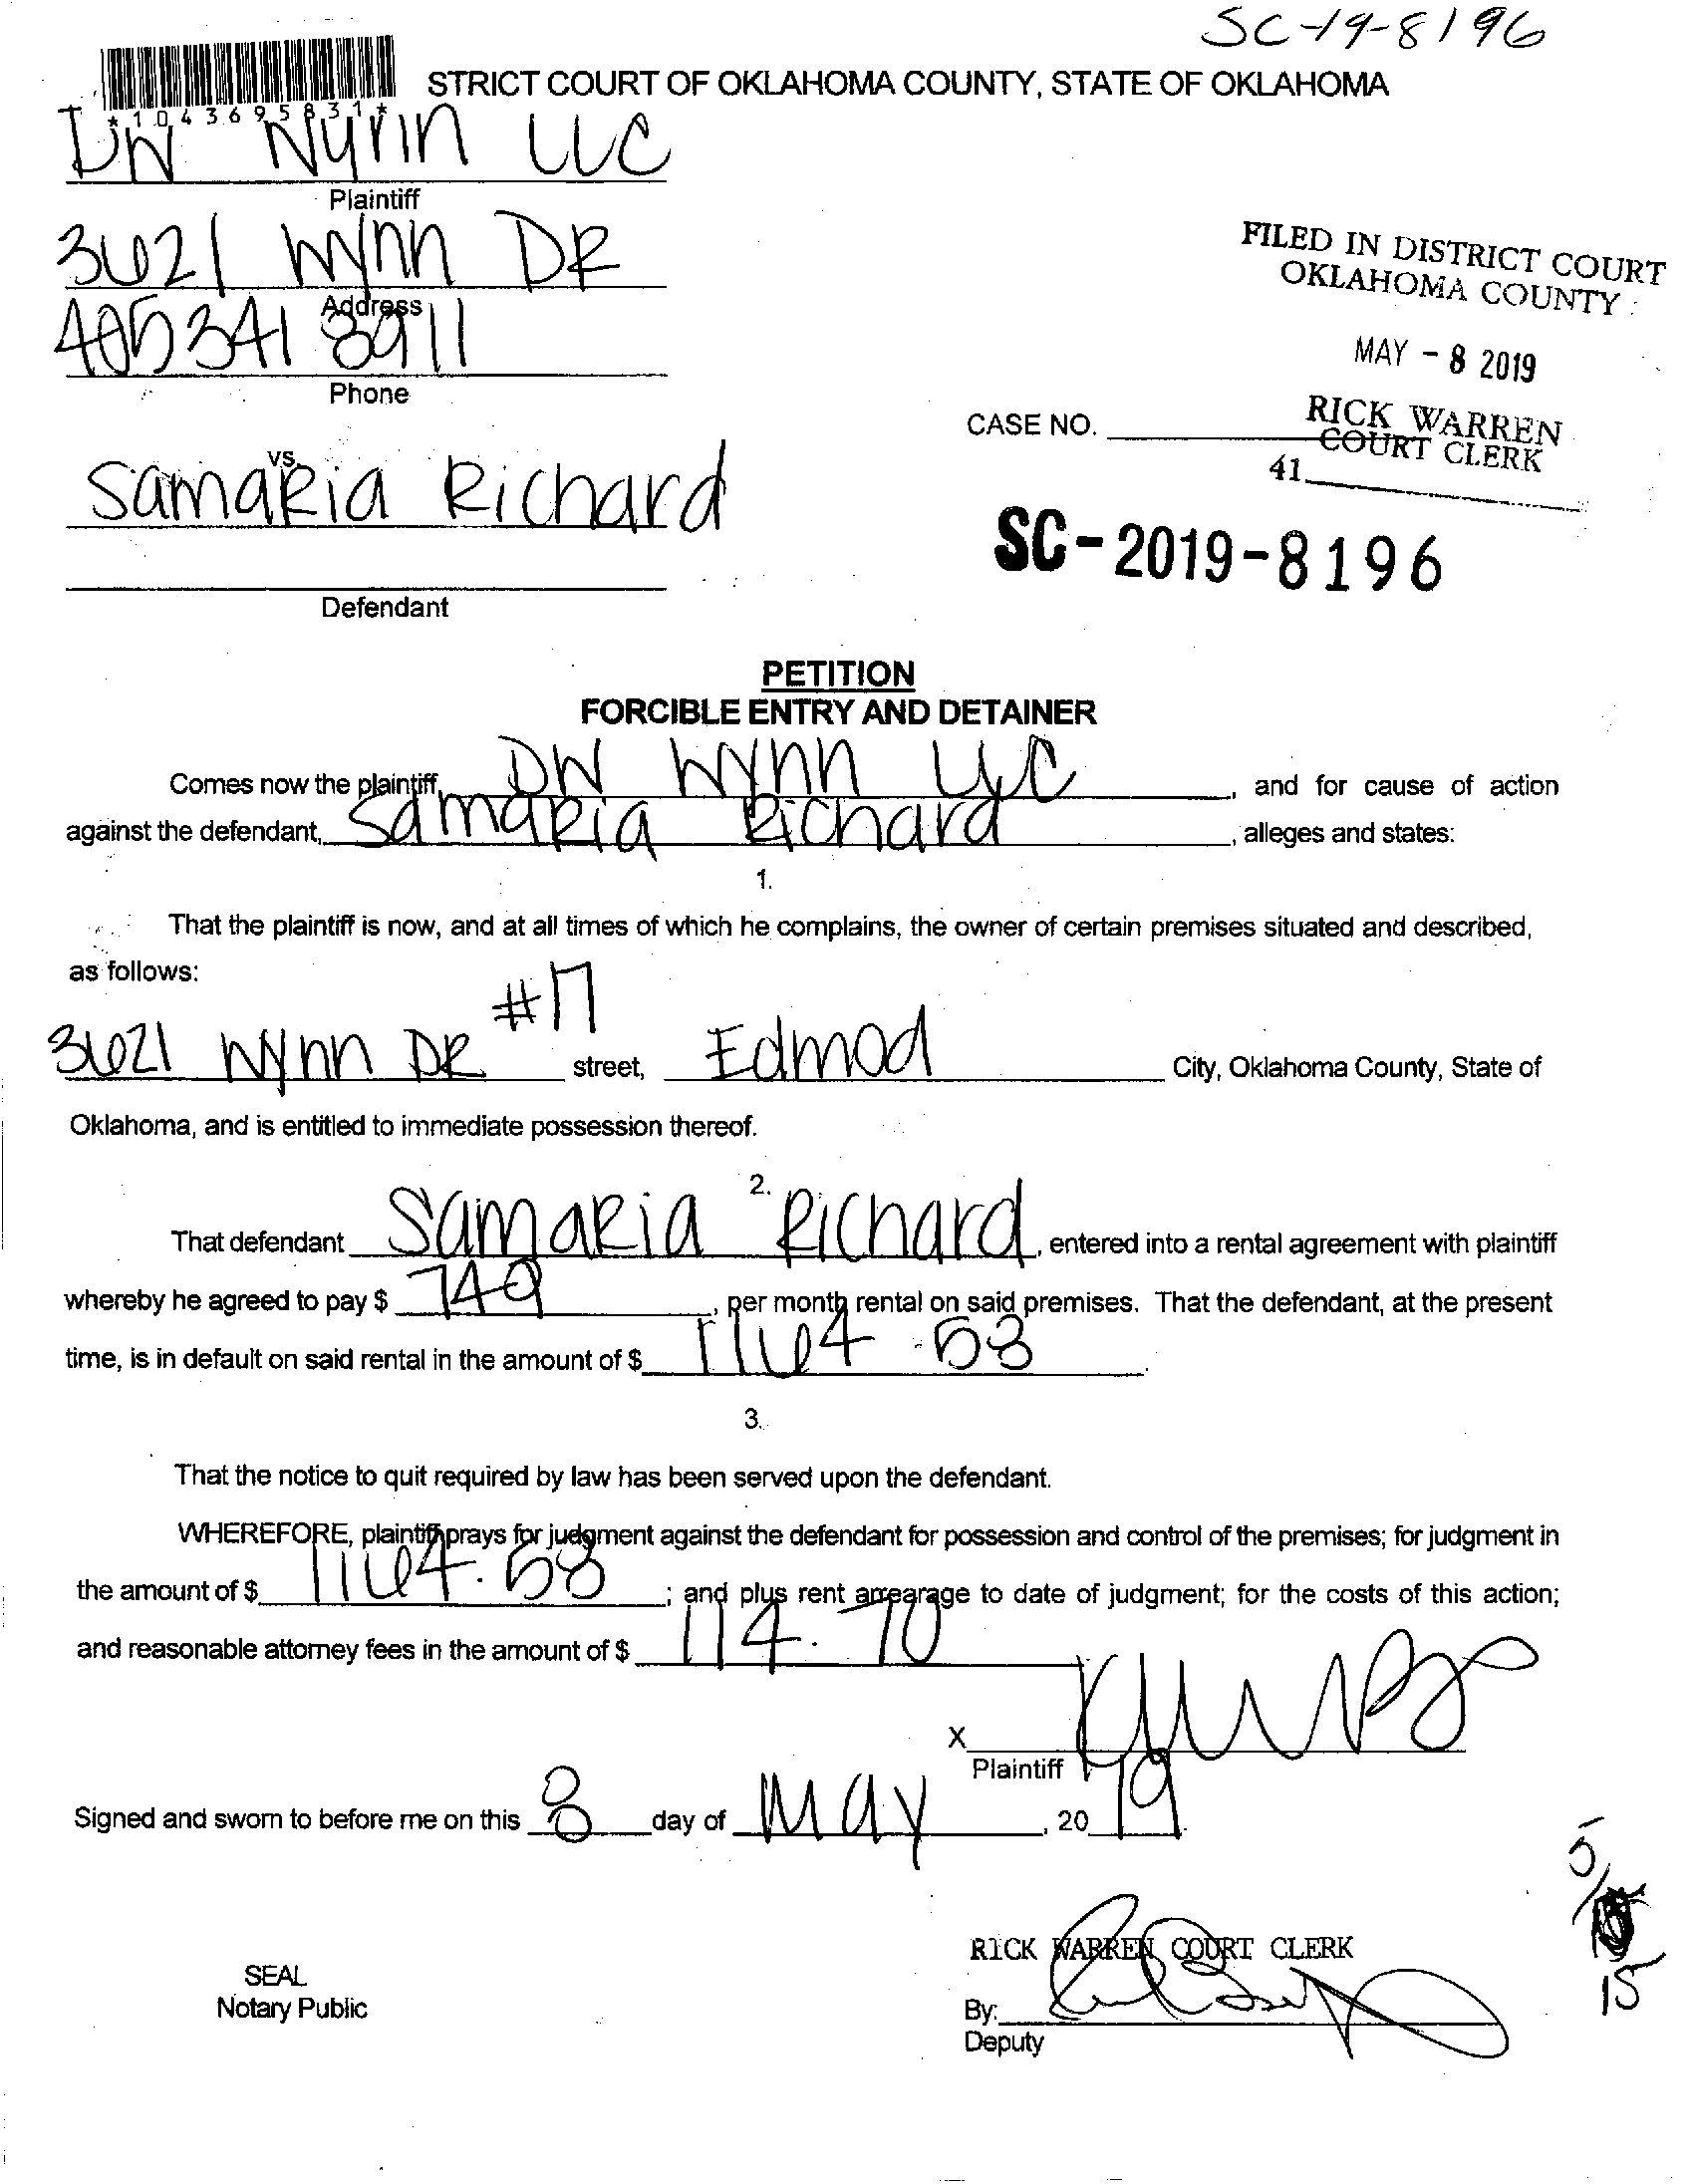 SC-19-8196
STRICT COURT OF OKLAHOMA COUNTY, STATE OF OKLAHOMA
*1043695831*
DW Wynn LLC
Plaintiff
3621 Wynn DR
Address
405 341 8911
Phone
FILED IN DISTRICT COURT
OKLAHOMA COUNTY
MAY - 8 2019
RICK WARREN
COURT CLERK
41
CASE NO.
vs.
Samaria Richard
SC-2019-8196
Defendant
PETITION
FORCIBLE ENTRY AND DETAINER
Comes now the plaintiff, DW Wynn LLC, and for cause of action
against the defendant, Samaria Richard, alleges and states:
1.
That the plaintiff is now, and at all times of which he complains, the owner of certain premises situated and described,
as follows:
3621 Wynn DR #17 street, Edmod City, Oklahoma County, State of
Oklahoma, and is entitled to immediate possession thereof.
2.
That defendant Samaria Richard, entered into a rental agreement with plaintiff
whereby he agreed to pay $ 749, per month rental on said premises. That the defendant, at the present
time, is in default on said rental in the amount of $ 1164.58.
3.
That the notice to quit required by law has been served upon the defendant.
WHEREFORE, plaintiff prays for judgment against the defendant for possession and control of the premises; for judgment in
the amount of $ 1164.58; and plus rent arrearage to date of judgment; for the costs of this action;
and reasonable attorney fees in the amount of $ 114.70
X
Plaintiff
Signed and sworn to before me on this 8 day of May, 2019.
5/
15
RICK WARREN COURT CLERK
SEAL
Notary Public
By:
Deputy